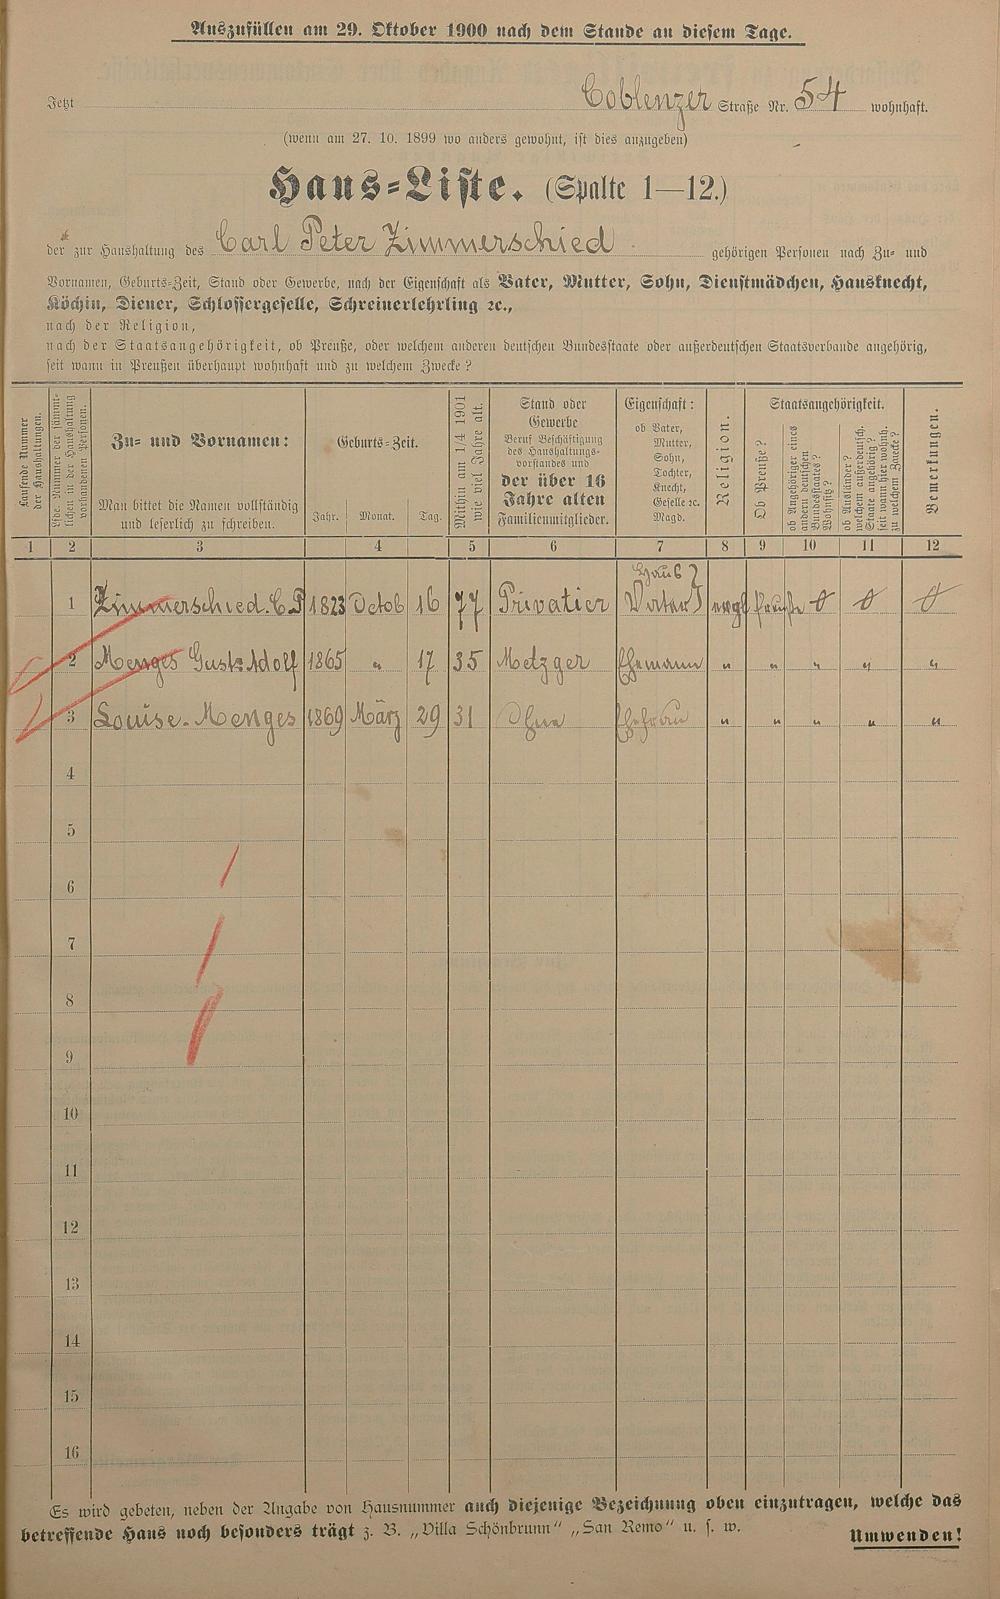 Auszufüllen am 29. Oktober 1900 nach dem Stande an diesem Tage.
Jetzt Coblenzer Straße Nr. 54 wohnhaft.
(wenn am 27. 10. 1899 wo anders gewohnt, ist dies anzugeben)
Haus-Liste. (Spalte 1—12.)
der zur Haushaltung des Carl Peter Zimmerschied gehörigen Personen nach Zu- und
Vornamen, Geburts-Zeit, Stand oder Gewerbe, nach der Eigenschaft als Vater, Mutter, Sohn, Dienstmädchen, Hausknecht,
Köchin, Diener, Schlossergeselle, Schreinerlehrling ꝛc.,
nach der Religion,
nach der Staatsangehörigkeit, ob Preuße, oder welchem anderen deutschen Bundesstaate oder außerdeutschen Staatsverbande angehörig,
seit wann in Preußen überhaupt wohnhaft und zu welchem Zwecke?
Laufende Nummer der Haushaltungen.
Lfde. Nummer der sämmtlichen in der Haushaltung vorhandenen Personen.
Zu- und Vornamen:
Man bittet die Namen vollständig
und leserlich zu schreiben.
Geburts-Zeit.
Jahr. Monat. Tag.
Mithin am 1/4 1901 wie viel Jahre alt.
Stand oder
Gewerbe
Beruf Beschäftigung
des Haushaltungs-
vorstandes und
der über 16
Jahre alten
Familienmitglieder.
Eigenschaft:
ob Vater,
Mutter,
Sohn,
Tochter,
Knecht,
Geselle ꝛc.
Magd.
Religion.
Staatsangehörigkeit.
Ob Preuße?
ob Angehöriger eines andern deutschen Bundesstaates? Wohnsitz?
ob Ausländer? welchem außerdeutsch. Staate angehörig? seit wann hier wohnh. zu welchem Zwecke?
Bemerkungen.
1 2 3 4 5 6 7 8 9 10 11 12
1 Zimmerschied. C. P 1823 Octob 16 77 Privatier Haus Vater evgl Preuße 0 0 0
2 Menges Gust. Adolf 1865 " 17 35 Metzger Ehemann " " " " "
3 Louise. Menges 1869 März 29 31 Ohne Ehefrau " " " " "
4
5
6
7
8
9
10
11
12
13
14
15
16
Es wird gebeten, neben der Angabe von Hausnummer auch diejenige Bezeichnung oben einzutragen, welche das
betreffende Haus noch besonders trägt z. B. „Villa Schönbrunn“ „San Remo“ u. s. w.
Umwenden!